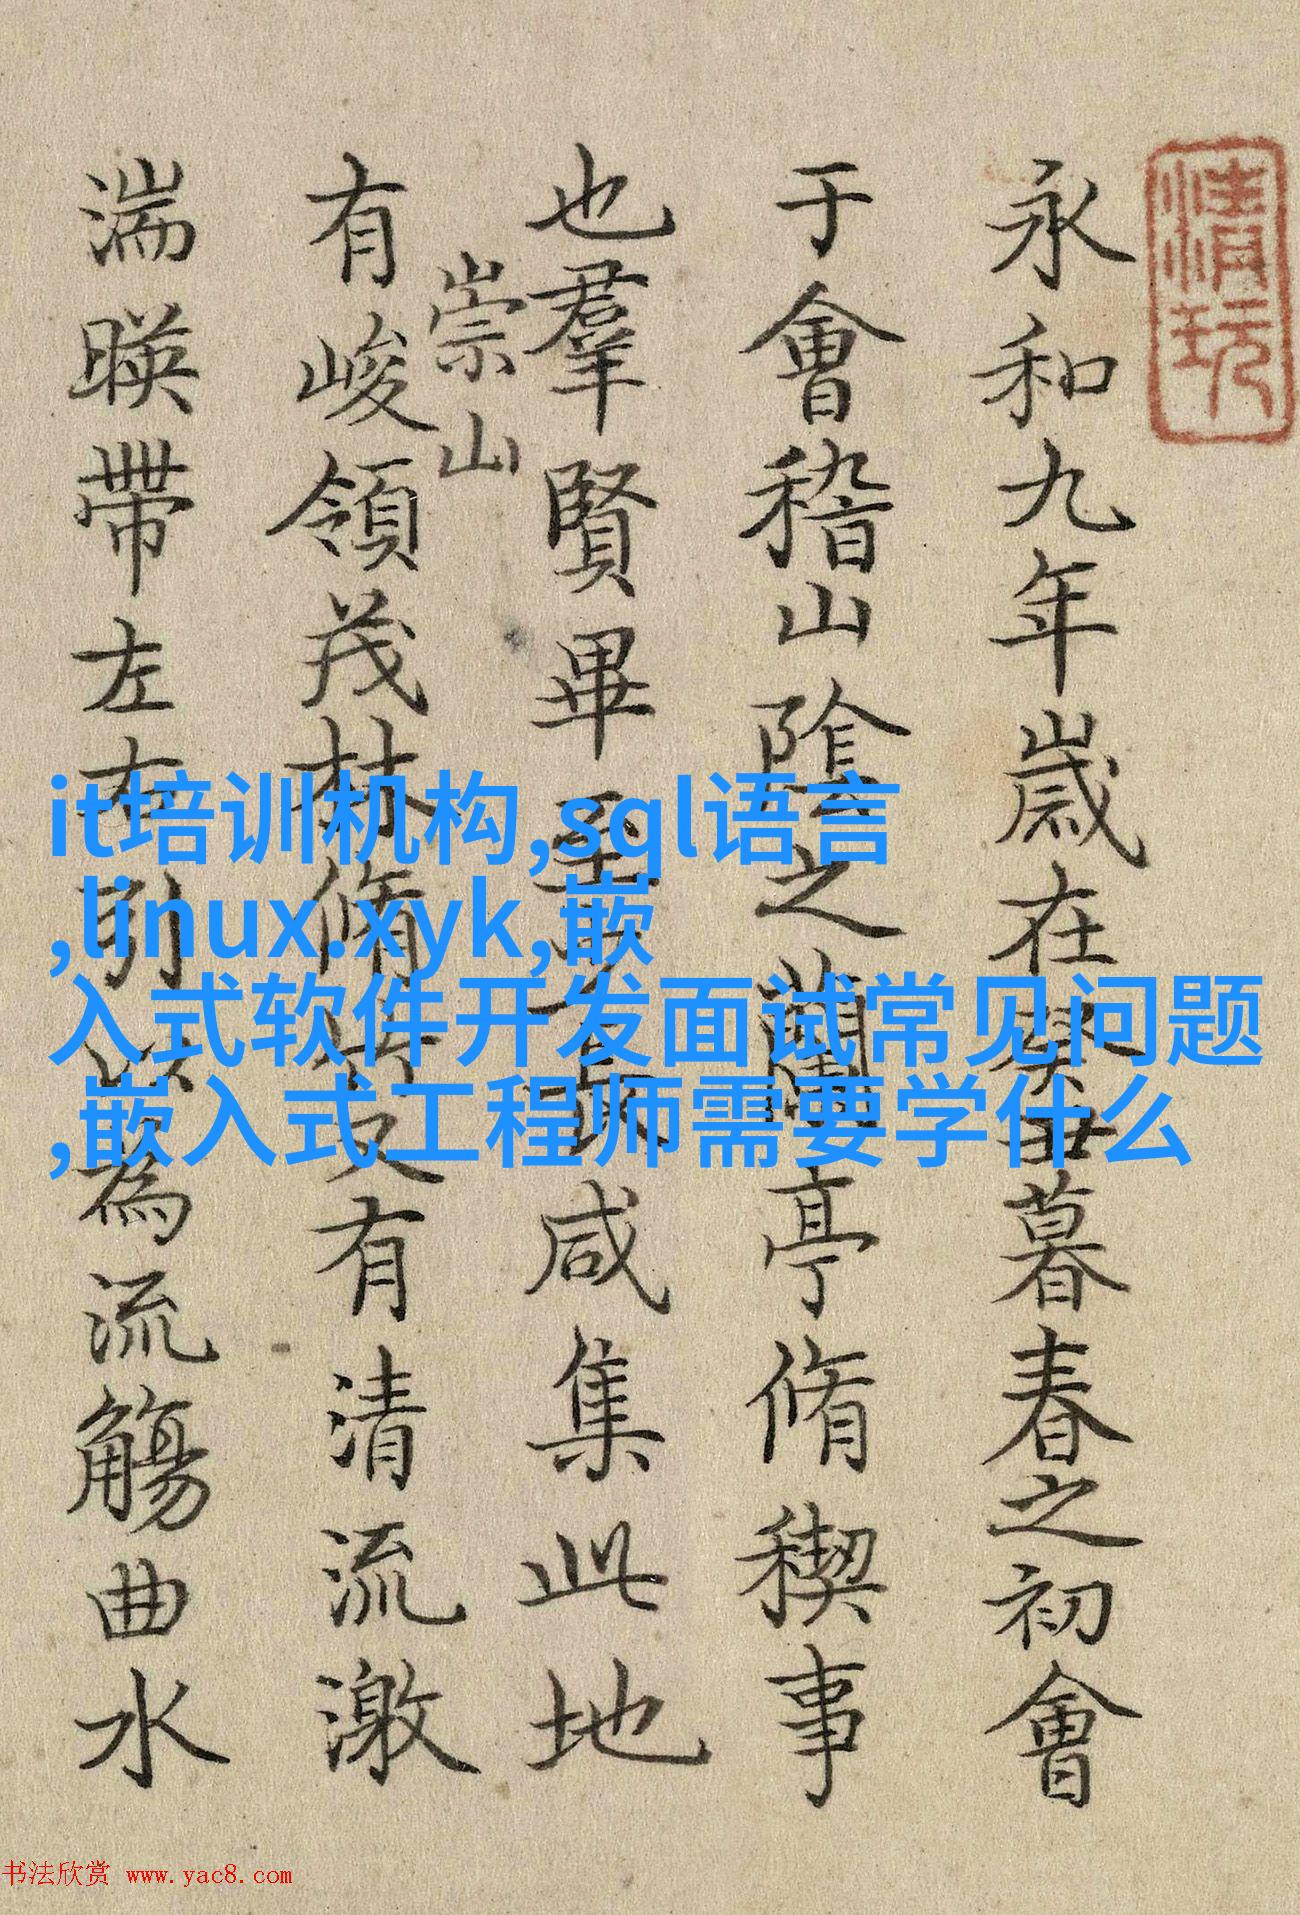 清玩
永和九年歲在癸丑暮春之初會
于會稽山陰之蘭亭脩稧事
也羣賢畢至少長咸集此地
崇山
有峻領茂林脩竹又有清流激
湍暎帶左右引以為流觴曲水
it培训机构,sql语言
,linux.xyk,嵌
入式软件开发面试常见问题
,嵌入式工程师需要学什么
书法欣赏 www.yac8.com